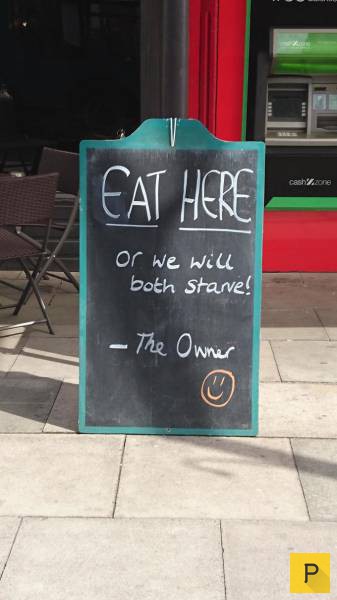 cashzone
cashzone
EAT HERE
Or we will
both starve!
- The Owner
P